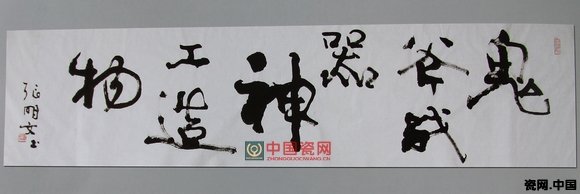 鬼斧成器神工造物
张明文书
中国瓷网
ZHONGGUOCIWANG.CN
瓷网.中国